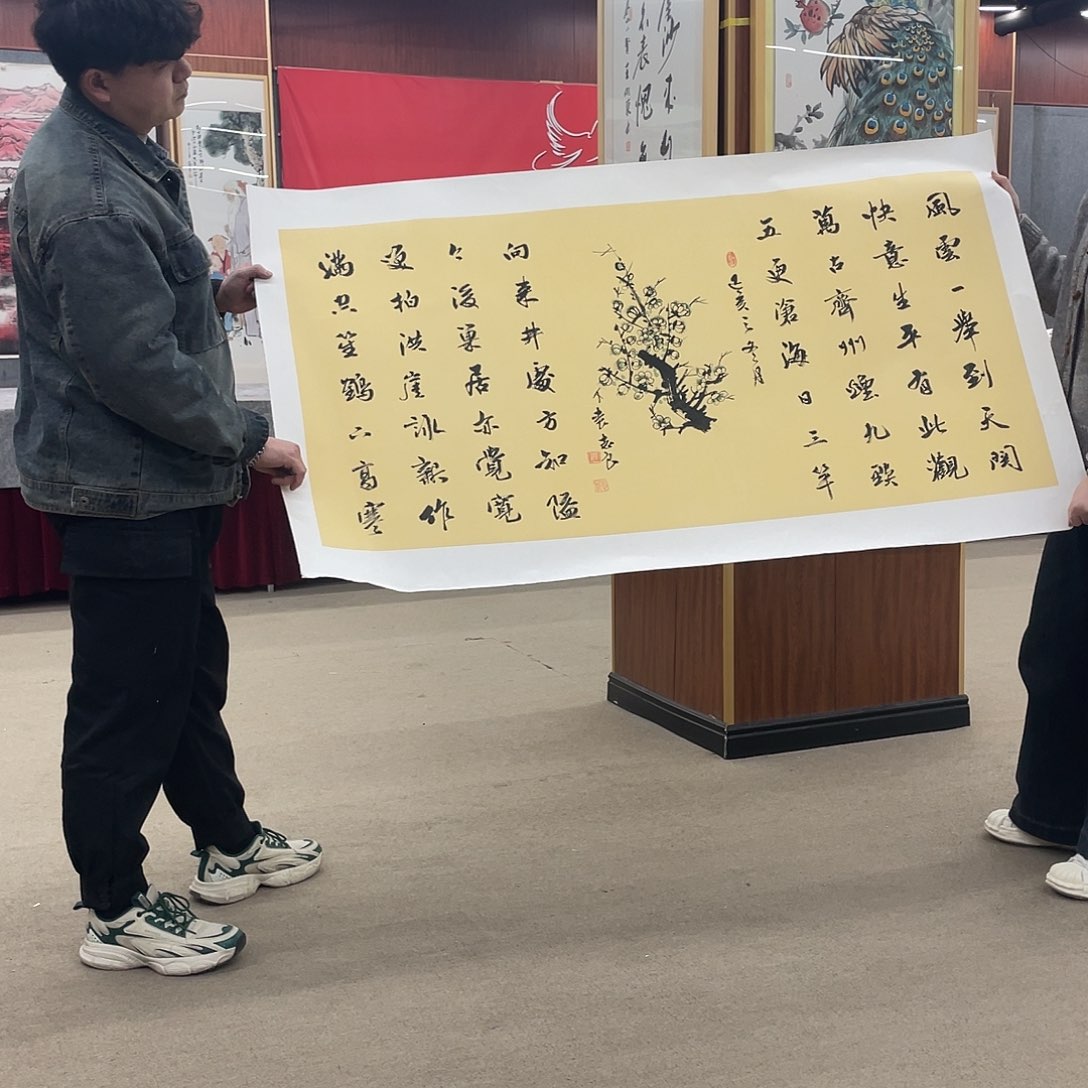 風雲一舉到天関
快意生平有此觀
萬古齊州煙九點
五更滄海日三竿
己亥之冬月
向来井處方知隘
今後巢居亦覺寬
笑拍洪崖詠新作
滿空笙鶴下高寒